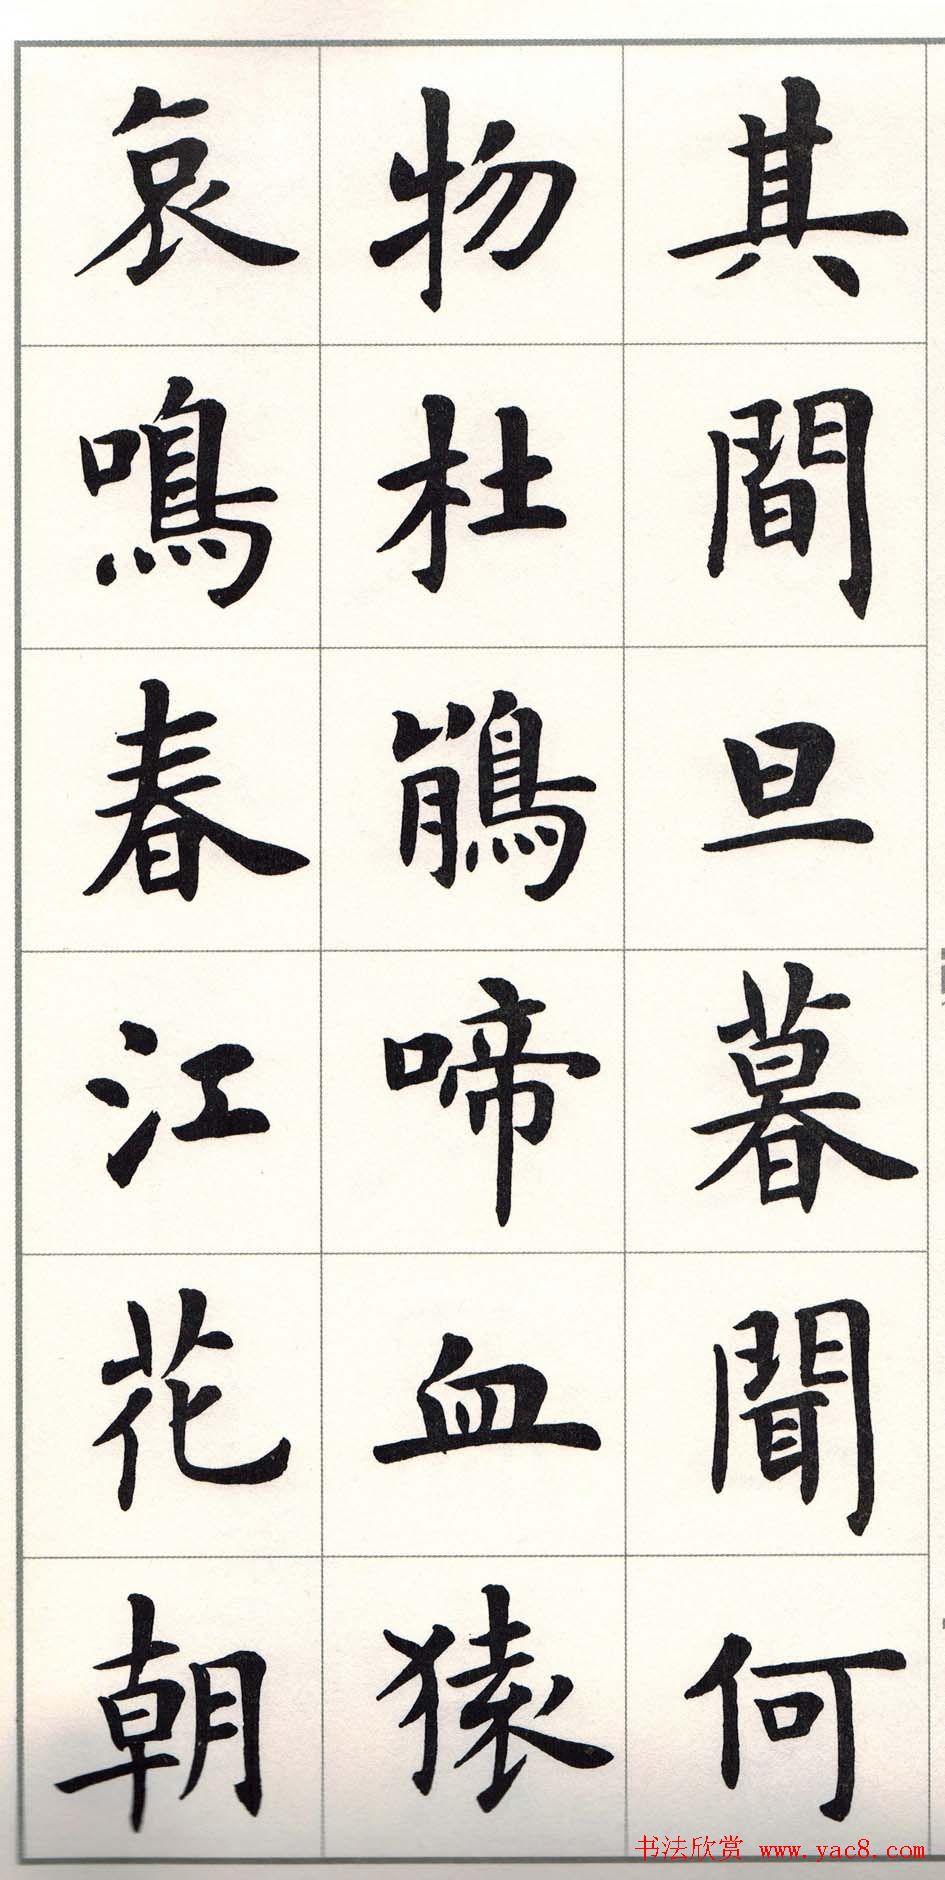 其間旦暮聞何
物杜鵑啼血猿
哀鳴春江花朝
书法欣赏 www.yac8.com